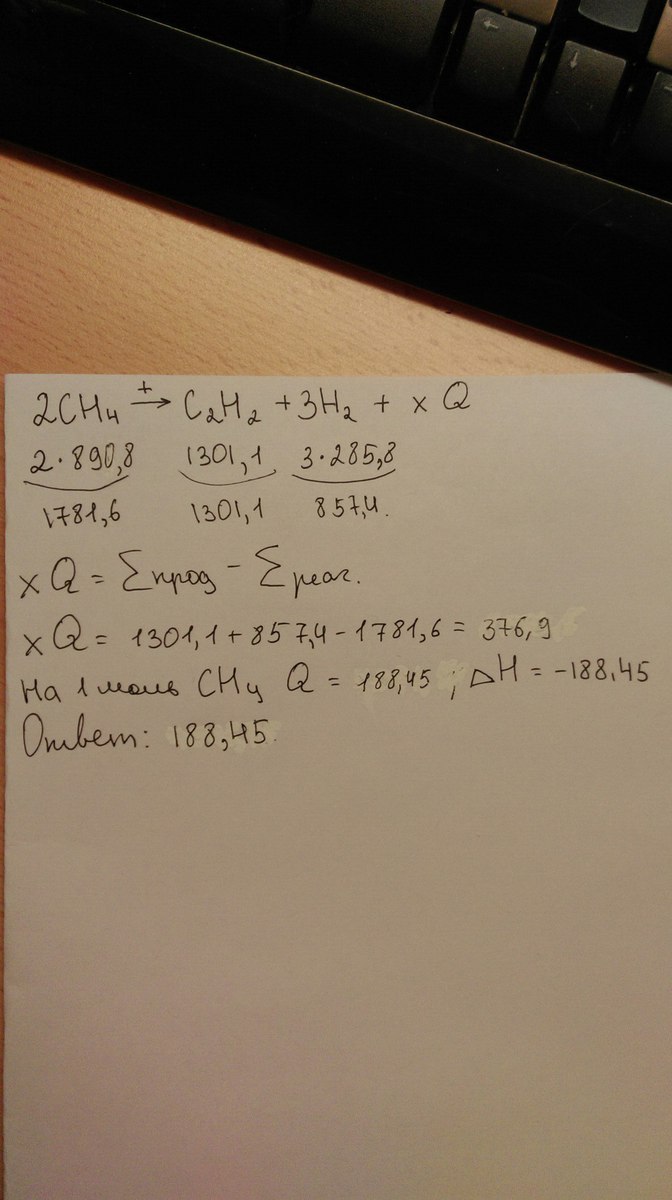 2CH₄ →⁺ C₂H₂ + 3H₂ + x Q
2·890,8 1301,1 3·285,8
1781,6 1301,1 857,4.
x Q = Σпрод - Σреаг.
x Q = 1301,1 + 857,4 - 1781,6 = 376,9
На 1 моль CH₄ Q = 188,45 ; ΔH = -188,45
Ответ: 188,45.